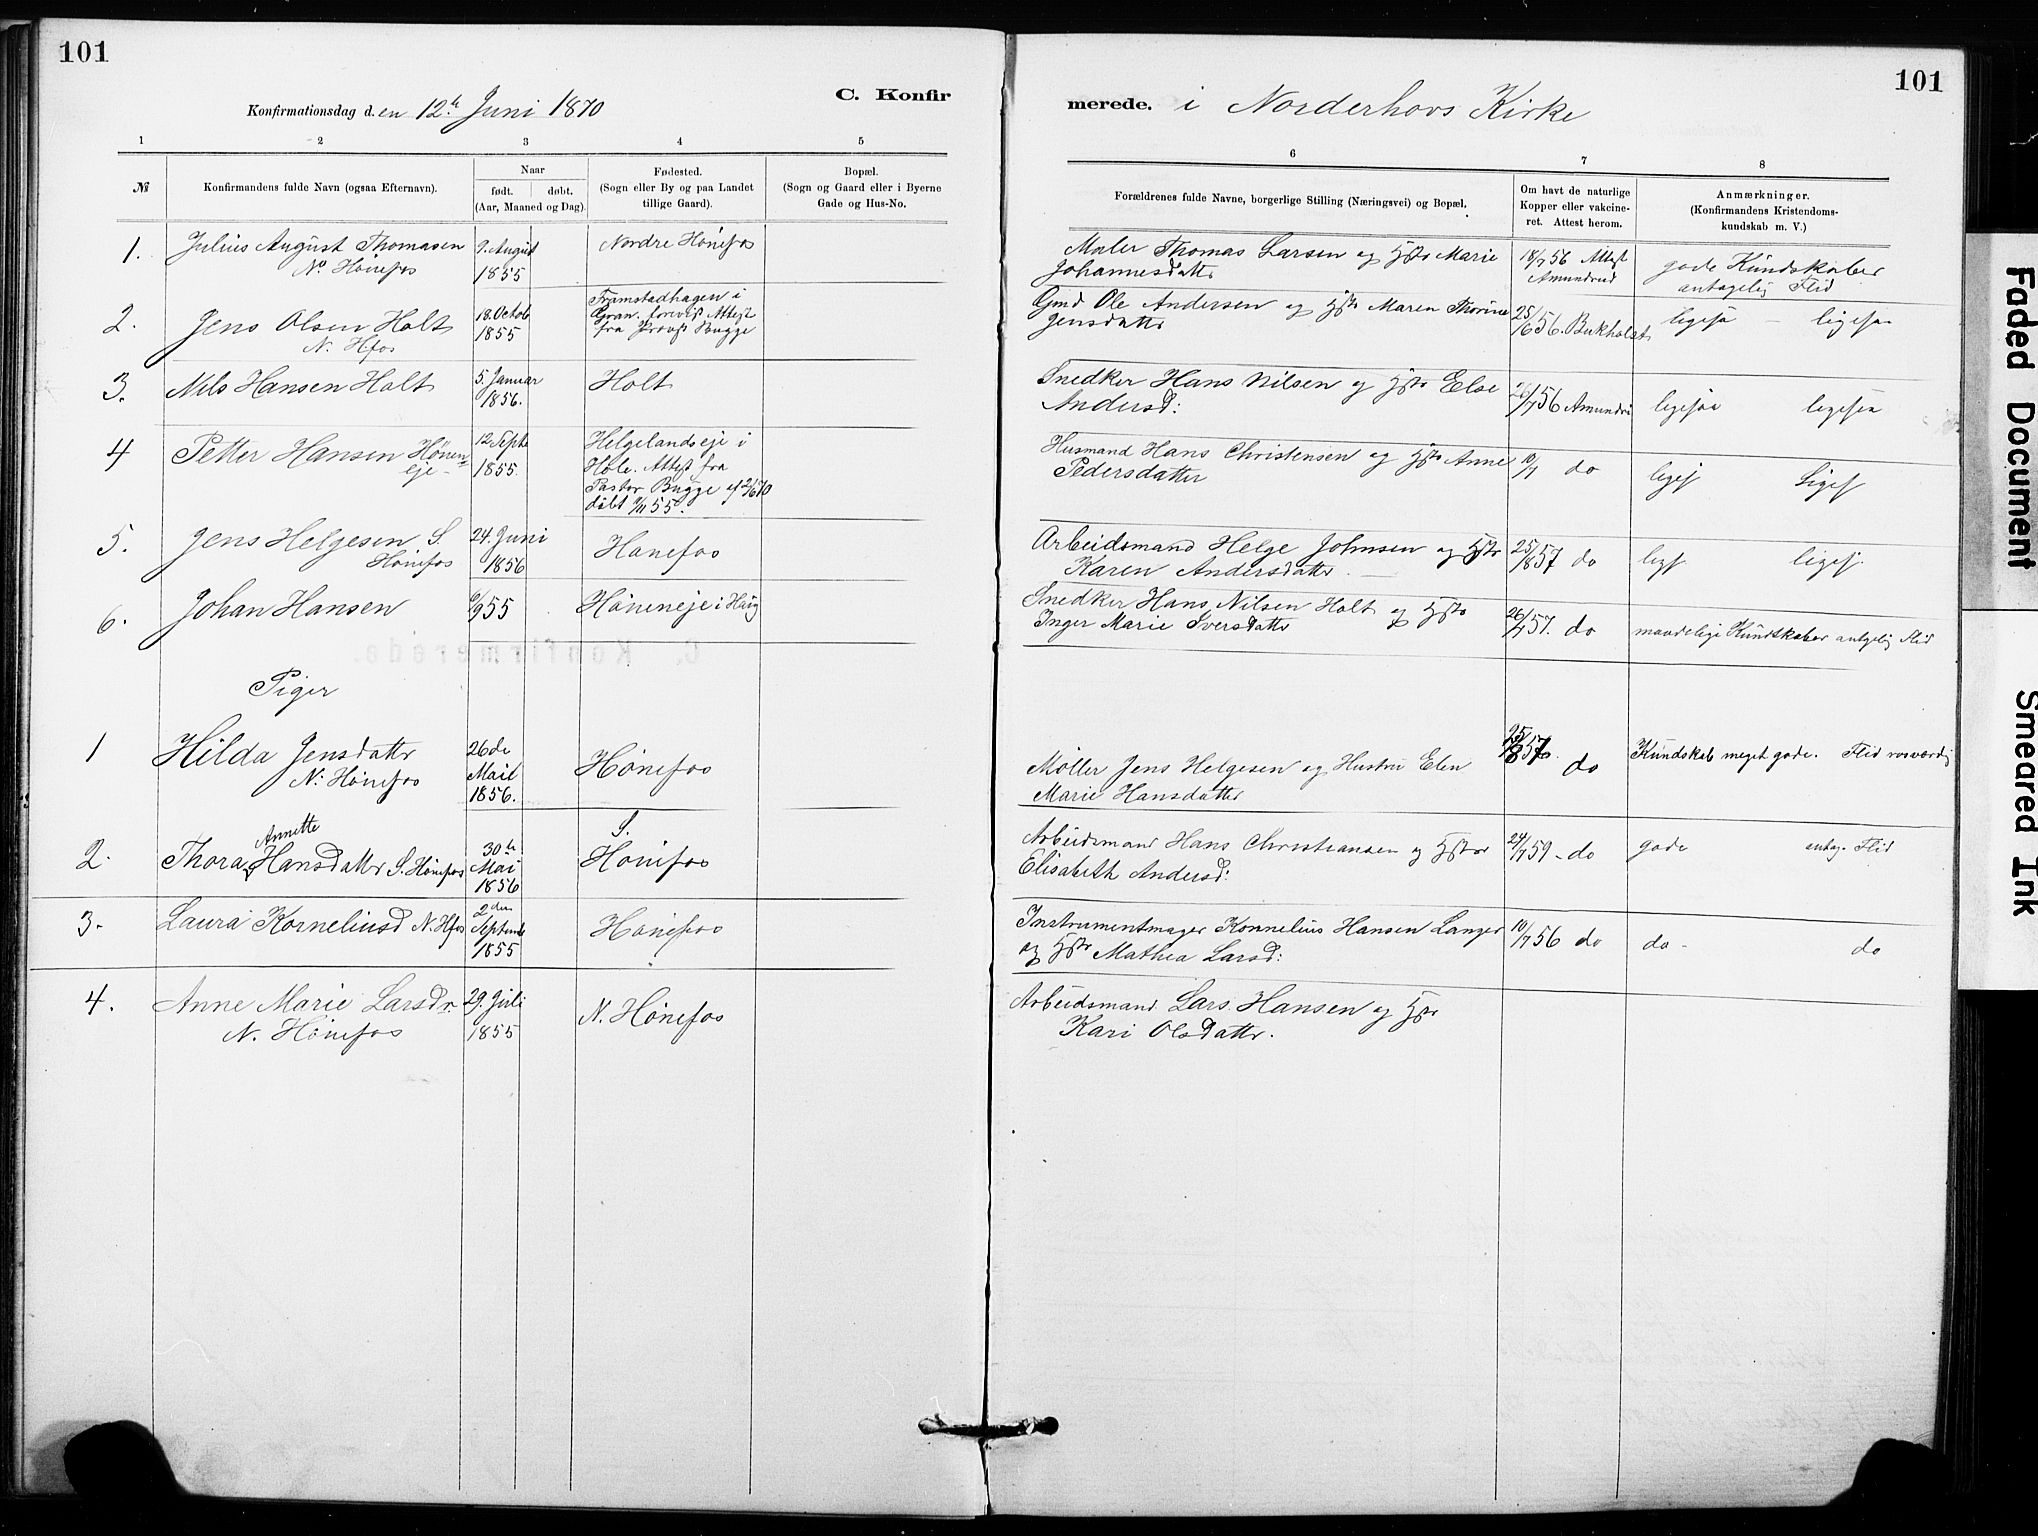 101
101
C. Konfir
merede. i Norderhovs Kirke
Konfirmationsdag den 12te Juni 1870
1 2 3 4 5
6 7 8
№
Konfirmandens fulde Navn (ogsaa Efternavn).
Naar
født. døbt.
(Aar, Maaned og Dag).
Fødested.
(Sogn eller By og paa Landet
tillige Gaard).
Bopæl.
(Sogn og Gaard eller i Byerne
Gade og Hus-No.
Forældrenes fulde Navne, borgerlige Stilling (Næringsvei) og Bopæl.
Om havt de naturlige
Kopper eller vakcine-
ret. Attest herom.
Anmærkninger.
(Konfirmandens Kristendoms-
kundskab m. V.)
1. Julius August Thomasen
No Hønefos
9. August
1855
Nordre Hønefos
Maler Thomas Larsen og Hstr Marie
Johannesdattr
18/7 56 Attest
Amundrud
gode Kundskaber
antagelig Flid
2. Jens Olsen Holt
N. Hfos
18. Octob
1855
Framstadhagen i
Gran. forevist Attest
fra Provst Bugge
Gmd Ole Andersen og Hstr Maren Thorine
Jensdattr
25/6 56. Bukholst
ligesaa — ligesaa
3. Nils Hansen Holt
5. Januar
1856.
Holt
Snedker Hans Nilsen og Hstr Else
Andersd:
/7 56 Amundr
ligesaa ligesaa
4 Petter Hansen Hønen-
eje -
12 Septe
1855.
Helgelandseje i
Hole. Attest fra
Pastor Bugge af 2/6 70
døbt 1/11 55.
Husmand Hans Christensen og Hstr Anne
Pedersdatter
10/7 do
liges Liges
5. Jens Helgesen S.
Hønefos
24. Juni
1856
Hønefos
Arbeidsmand Helge Johnsen og Hstr
Karen Andersdattr. —
25/8 57 do
liges liges.
6. Johan Hansen
6/9 55
Høneneje i Haug
Snedker Hans Nilsen Holt og Hstr
Inger Marie Iversdattr
26/7 57. do
maadelige Kundskaber antgelig Flid
Piger
1 Hilda Jensdattr
N. Hønefos
26de
Mail
1856.
Hønefos
Møller Jens Helgesen og Hustru Elen
Marie Hansdatter
25/8 57 do
Kundskab meget gode. Flid rosværdig
2. Thora Annette Hansdattr S. Hønefos
30te
Mai
1856
S.
Hønefos
Arbeidsmand Hans Christiansen og Hstr
Elisabeth Andersd:
24/7 59 - do
gode antag. Flid
3. Laura Korneliusd N. Hfos
2den
Septemb
1855
Hønefos
Instrumentmager Kornelius Hansen Langer
og Hstr Mathea Larsd:
10/7 56 do
do - do
4. Anne Marie Larsdr.
N. Hønefos
29. Juli
1855
N. Hønefos
Arbeidsmand Lars Hansen og Hstr
Kari Olsdattr.
C. Konfirmerede.
Faded Document
Smeared Ink